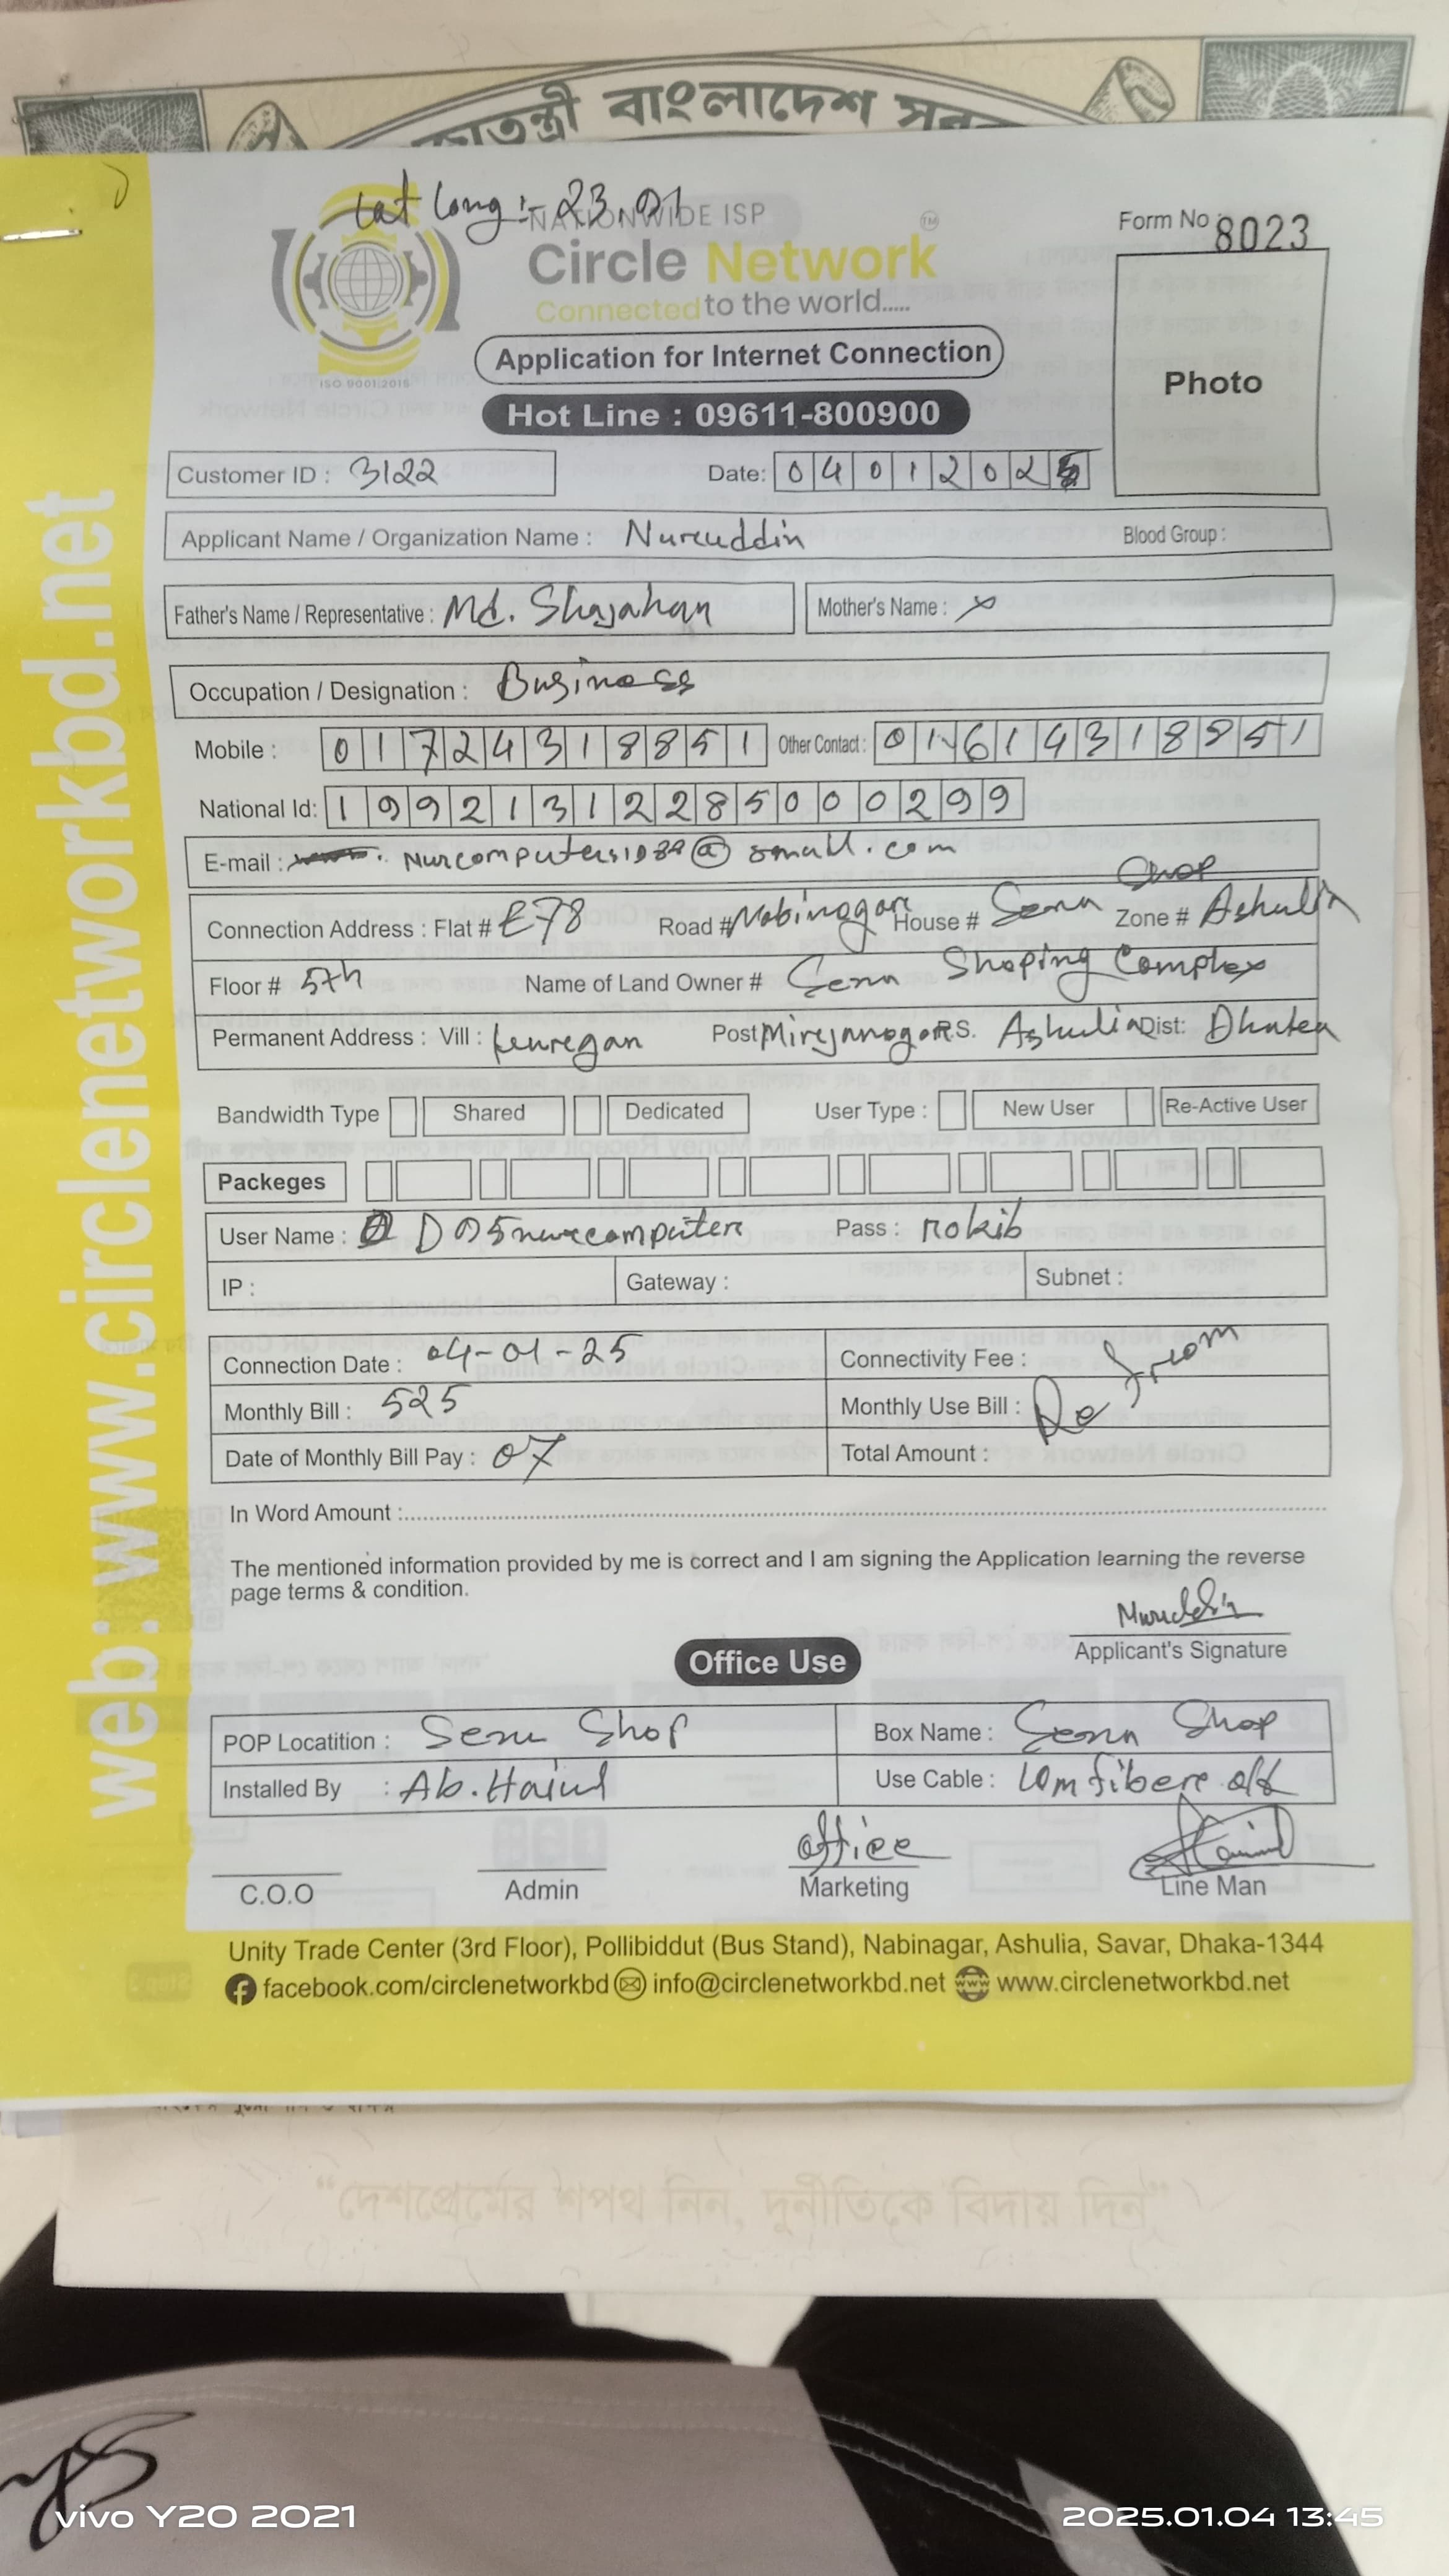 বাংলাদেশ
Lat Long :- 23.01
NATIONWIDE ISP
Form No : 8023
Circle Network TM
Connected to the world.....
ISO 9001:2015
Application for Internet Connection
Photo
Hot Line : 09611-800900
Customer ID : 3122 Date: 04012025
Applicant Name / Organization Name : Nuruddin Blood Group :
Father's Name / Representative : Md. Shajahan Mother's Name : x
Occupation / Designation : Business
Mobile : 01724318851 Other Contact : 01614318851
National Id: 19921312285000299
E-mail : @ gmail.com
Shop
Connection Address : Flat # E78 Road # Nobinogor House # Sena Zone # Ashulia
Floor # 5th Name of Land Owner # Sena Shoping Complex
Permanent Address : Vill : Post P.S. Ashulia Dist: Dhaka
Bandwidth Type Shared Dedicated User Type : New User Re-Active User
Packeges
User Name : D05nurcomputer Pass : rokib
IP : Gateway : Subnet :
Connection Date : 04-01-25 Connectivity Fee :
Monthly Bill : 525 Monthly Use Bill :
Date of Monthly Bill Pay : 07 Total Amount :
In Word Amount :
The mentioned information provided by me is correct and I am signing the Application learning the reverse
page terms & condition.
Nuruddin
Applicant's Signature
Office Use
POP Locatition : Sena Shop Box Name : Sena Shop
Installed By : Use Cable : 10m fiber
office
C.O.O Admin Marketing Line Man
Unity Trade Center (3rd Floor), Pollibiddut (Bus Stand), Nabinagar, Ashulia, Savar, Dhaka-1344
facebook.com/circlenetworkbd info@circlenetworkbd.net www www.circlenetworkbd.net
web: www.circlenetworkbd.net
“দেশপ্রেমের শপথ নিন, দুর্নীতিকে বিদায় দিন”
vivo Y20 2021 2025.01.04 13:45